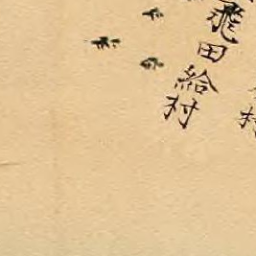 飛田給村
村